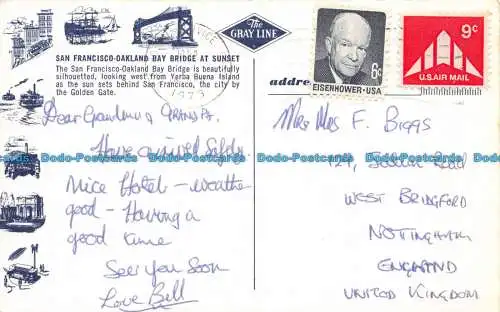 The
GRAY LINE
SAN FRANCISCO-OAKLAND BAY BRIDGE AT SUNSET
The San Francisco-Oakland Bay Bridge is beautifully
silhouetted, looking west from Yerba Buena Island
as the sun sets behind San Francisco, the city by
the Golden Gate.
1973
6c
EISENHOWER·USA
9c
U.S. AIR MAIL
address
Dear Grandma & GRANDPA,
Have arrived Safely
Nice Hotel - weathe
good - Having a
good time
See you Soon
Love Bell
Mr & Mrs F. BIGGS
Road
WEST BRIDGFORD
NOTTINGHAM
ENGLAND
UNITED KINGDOM
Dodo-Postcards.com Dodo-Postcards.com Dodo-Postcards.com Dodo-Postcards.com